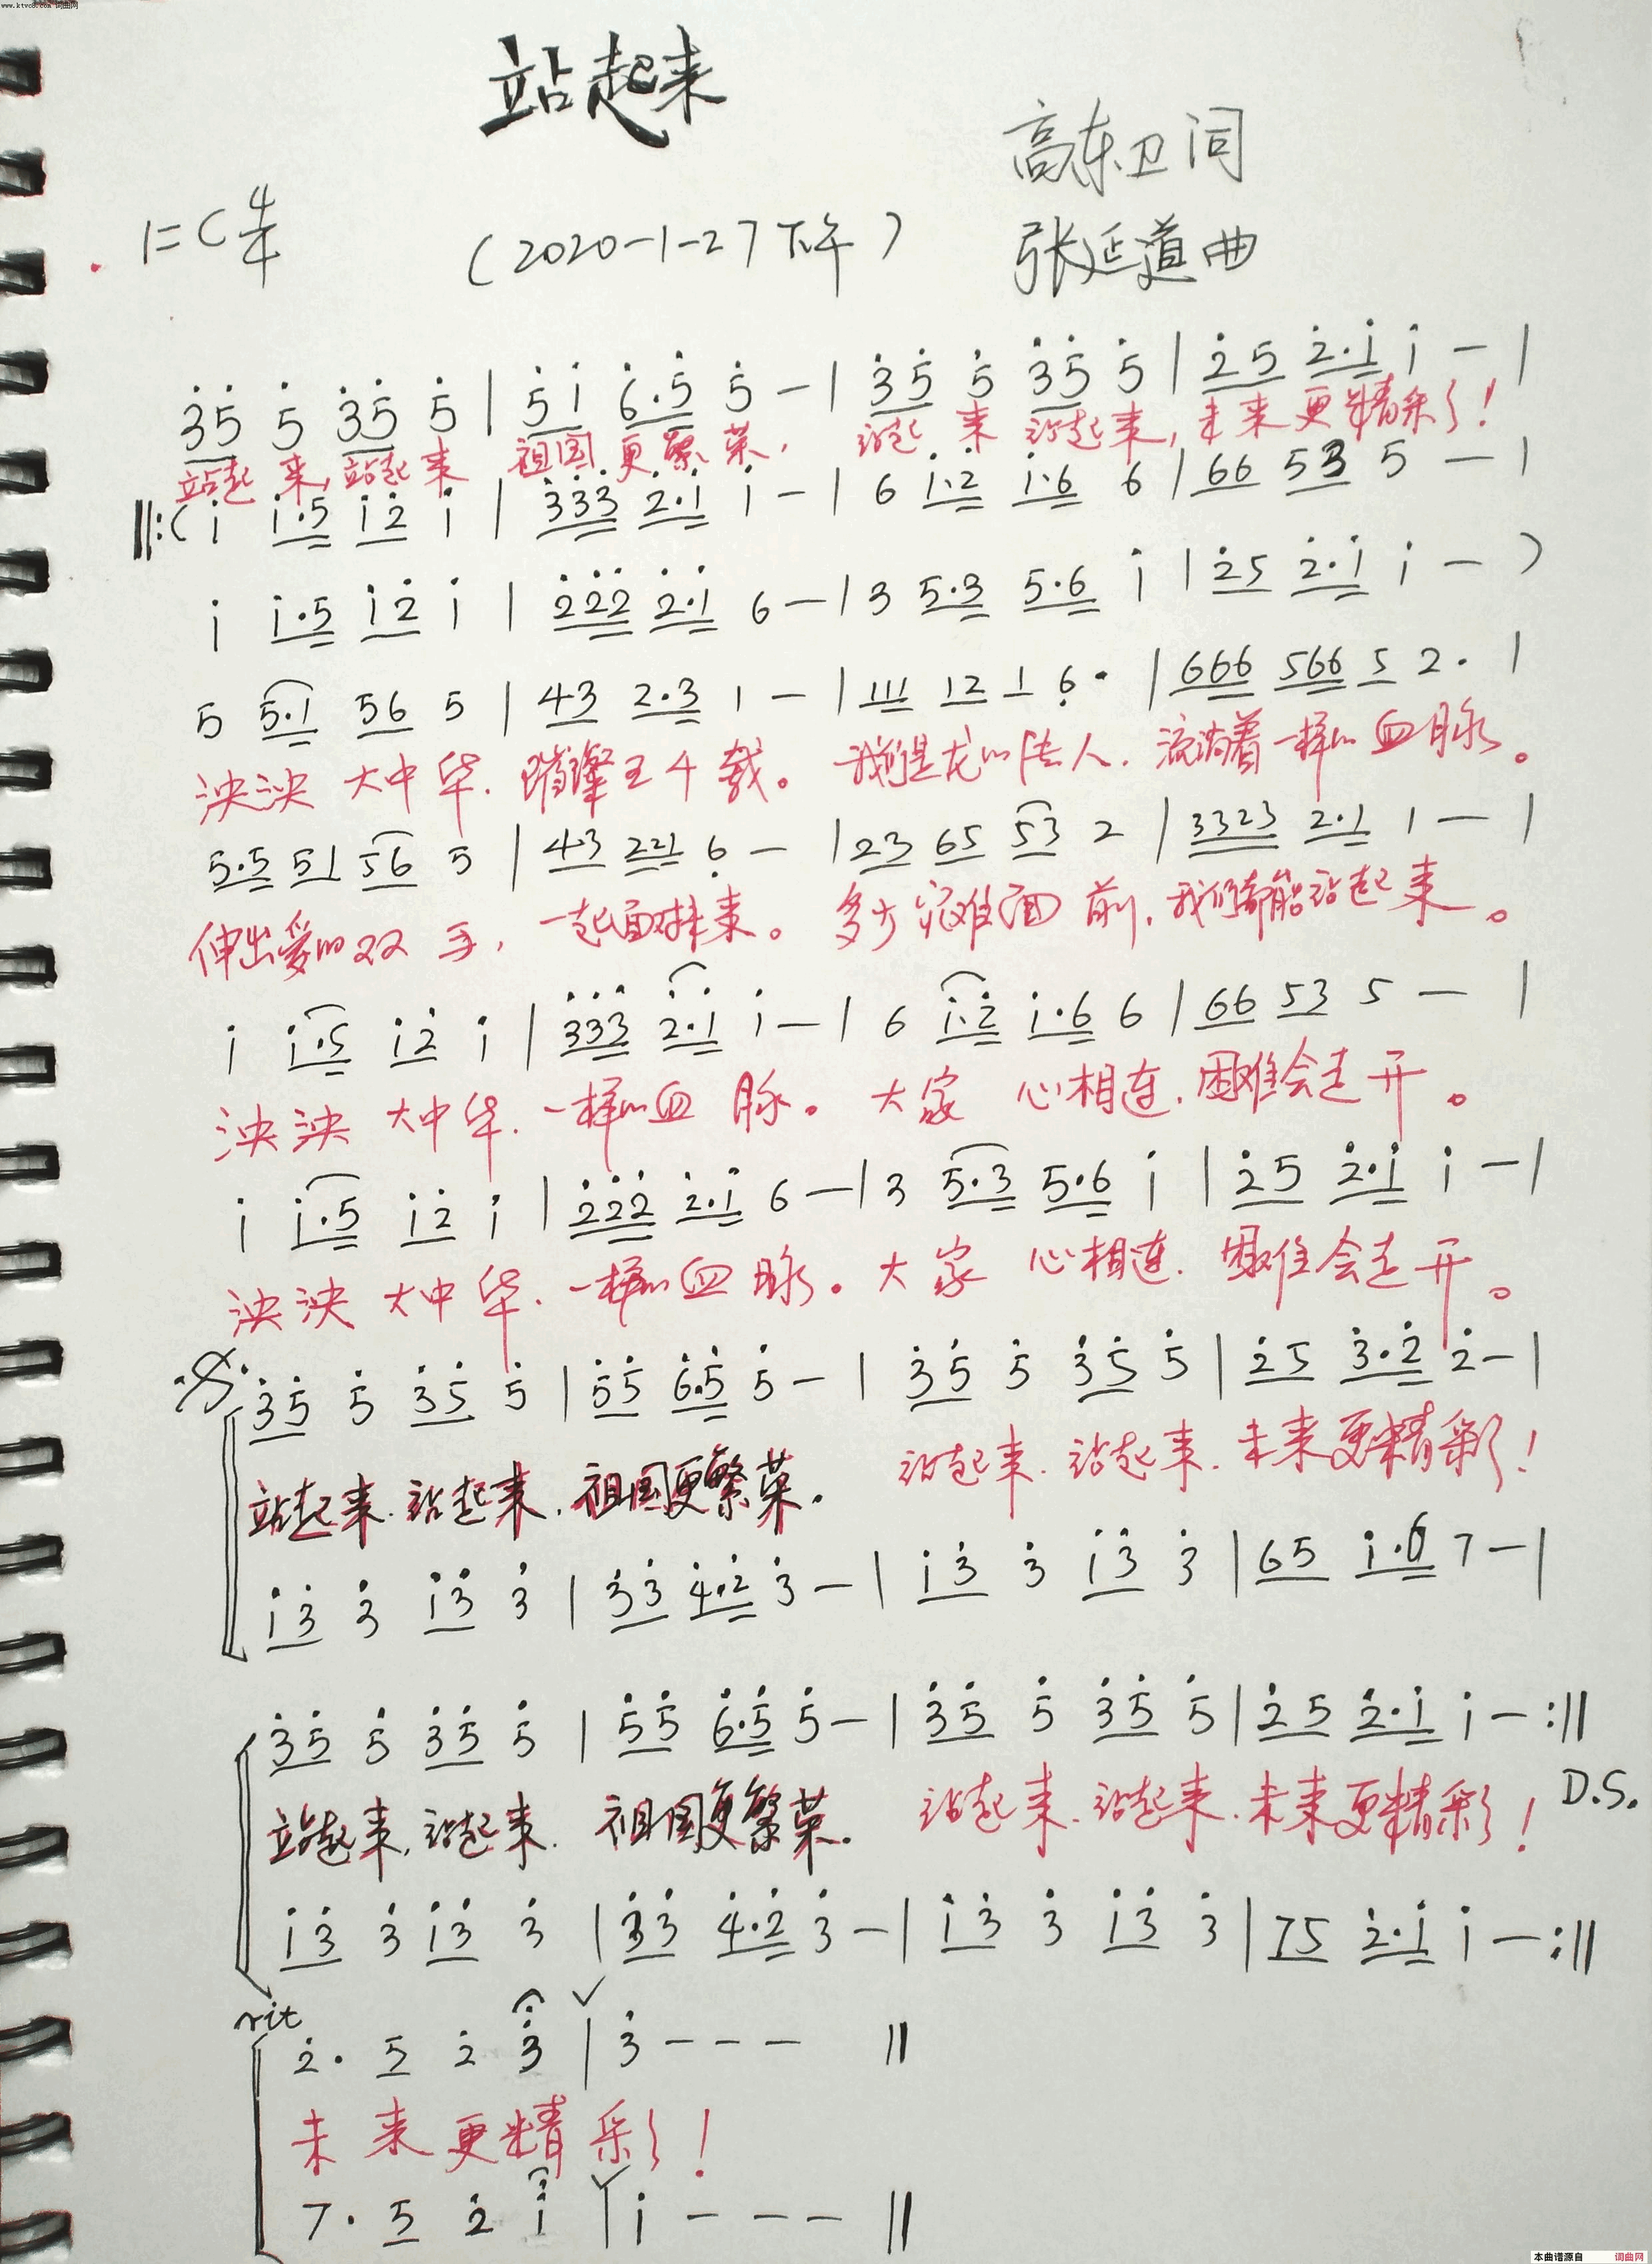 www.ktvc8.com 词曲网
站起来
高东卫 词
1=C 4/4 (2020-1-27下午) 张延道 曲
3̇5̇ 5̇ 3̇5̇ 5̇ | 5̇1̇ 6̇·5̇ 5̇ — | 3̇5̇ 5̇ 3̇5̇ 5̇ | 2̇5 2̇·1̇ 1̇ — |
站起来,站起来 祖国更繁荣, 站起来 站起来,未来更精彩!
‖:( 1̇ 1̇·5 1̇2̇ 1̇ | 3̇3̇3̇ 2̇·1̇ 1̇ — | 6 1̇·2̇ 1̇·6 6 | 66 53 5 — |
1̇ 1̇·5 1̇2̇ 1̇ | 2̇2̇2̇ 2̇·1̇ 6 — | 3 5·3 5·6 1̇ | 2̇5 2̇·1̇ 1̇ — )
5 5·1 56 5 | 43 2·3 1 — | 111 12 1 6̣· | 666 566 5 2· |
泱泱 大中华. 璀璨五千载。 我们是龙的传人. 流淌着一样的血脉。
5·5 51 56 5 | 43 221 6̣ — | 23 65 53 2 | 3323 2·1 1 — |
伸出爱的双手, 一起面对未来。 多少灾难面前, 我们都能站起来。
1̇ 1̇·5 1̇2̇ 1̇ | 3̇3̇3̇ 2̇·1̇ 1̇ — | 6 1̇·2̇ 1̇·6 6 | 66 53 5 — |
泱泱 大中华. 一样的血脉。 大家 心相连. 困难会走开。
1̇ 1̇·5 1̇2̇ 1̇ | 2̇2̇2̇ 2̇·1̇ 6 — | 3 5·3 5·6 1̇ | 2̇5 2̇·1̇ 1̇ — |
泱泱 大中华. 一样的血脉。大家 心相连. 困难会走开。
3̇5̇ 5̇ 3̇5̇ 5̇ | 5̇5̇ 6̇·5̇ 5̇ — | 3̇5̇ 5̇ 3̇5̇ 5̇ | 2̇5 3̇·2̇ 2̇ — |
站起来.站起来.祖国更繁荣. 站起来.站起来.未来更精彩!
1̇3̇ 3̇ 1̇3̇ 3̇ | 3̇3̇ 4̇·2̇ 3̇ — | 1̇3̇ 3̇ 1̇3̇ 3̇ | 65 1̇·6 7 — |
3̇5̇ 5̇ 3̇5̇ 5̇ | 5̇5̇ 6̇·5̇ 5̇ — | 3̇5̇ 5̇ 3̇5̇ 5̇ | 2̇5 2̇·1̇ 1̇ — :‖
站起来,站起来. 祖国更繁荣. 站起来.站起来.未来更精彩! D.S.
1̇3̇ 3̇ 1̇3̇ 3̇ | 3̇3̇ 4̇·2̇ 3̇ — | 1̇3̇ 3̇ 1̇3̇ 3̇ | 75 2̇·1̇ 1̇ — :‖
rit
2̇· 5 2̇ 3̇ | 3̇ — — — ‖
未来更精彩!
7· 5 2̇ 1̇ | 1̇ — — — ‖
本曲谱源自 词曲网